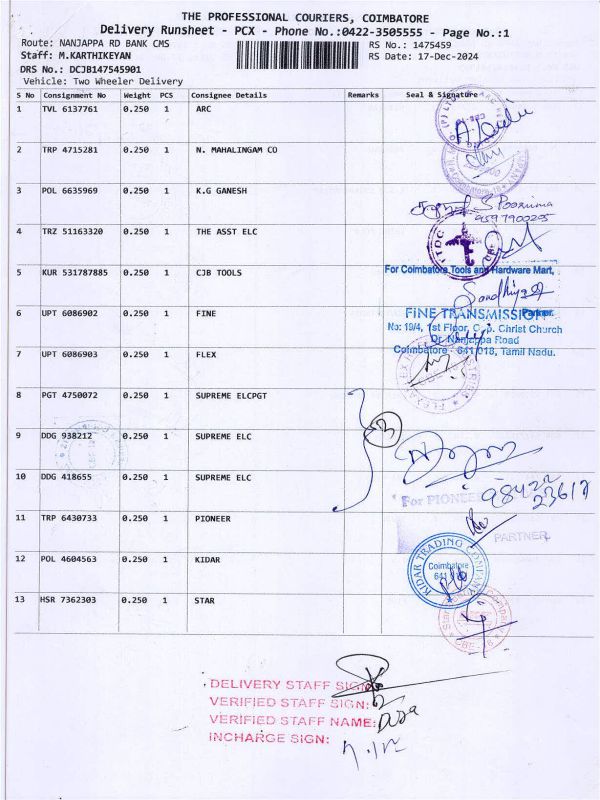 THE PROFESSIONAL COURIERS, COIMBATORE
Delivery Runsheet - PCX - Phone No.:0422-3505555 - Page No.:1
Route: NANJAPPA RD BANK CMS
RS No.: 1475459
Staff: M.KARTHIKEYAN
RS Date: 17-Dec-2024
DRS No.: DCJB147545901
Vehicle: Two Wheeler Delivery
S No Consignment No Weight PCS Consignee Details Remarks Seal & Signature
1 TVL 6137761 0.250 1 ARC
2 TRP 4715281 0.250 1 N. MAHALINGAM CO
3 POL 6635969 0.250 1 K.G GANESH
S Poornima
9597900295
4 TRZ 51163320 0.250 1 THE ASST ELC
5 KUR 531787885 0.250 1 CJB TOOLS
For Coimbatore Tools and Hardware Mart,
Partner.
6 UPT 6086902 0.250 1 FINE
FINE TRANSMISSION
No: 19/4, 1st Floor, C.p. Christ Church
Dr. Nanjappa Road
Coimbatore - 641 018, Tamil Nadu.
7 UPT 6086903 0.250 1 FLEX
8 PGT 4750072 0.250 1 SUPREME ELCPGT
3
9 DDG 938212 0.250 1 SUPREME ELC
10 DDG 418655 0.250 1 SUPREME ELC
98422
23617
For PIONEER
11 TRP 6430733 0.250 1 PIONEER
PARTNER
12 POL 4604563 0.250 1 KIDAR
KIDAR TRADING COMPANY
Coimbatore
641
13 HSR 7362303 0.250 1 STAR
DELIVERY STAFF SIGN:
VERIFIED STAFF SIGN:
VERIFIED STAFF NAME:
INCHARGE SIGN: